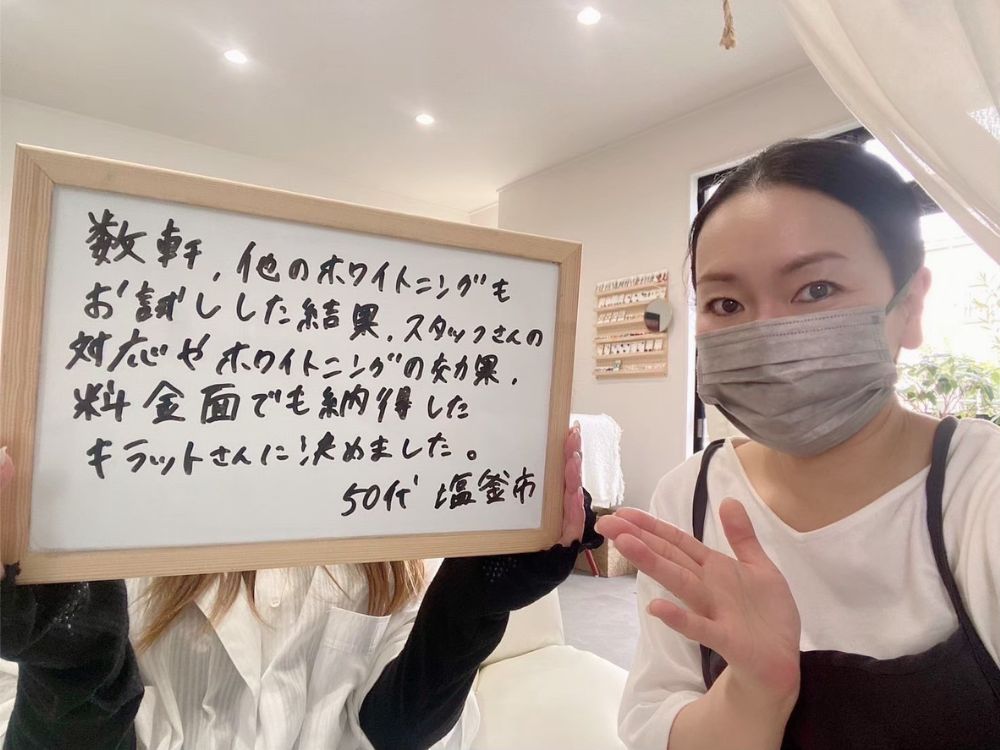 数軒、他のホワイトニングも
お試しした結果、スタッフさんの
対応やホワイトニングの効果、
料金面でも納得した
キラットさんに決めました。
50代 塩釜市